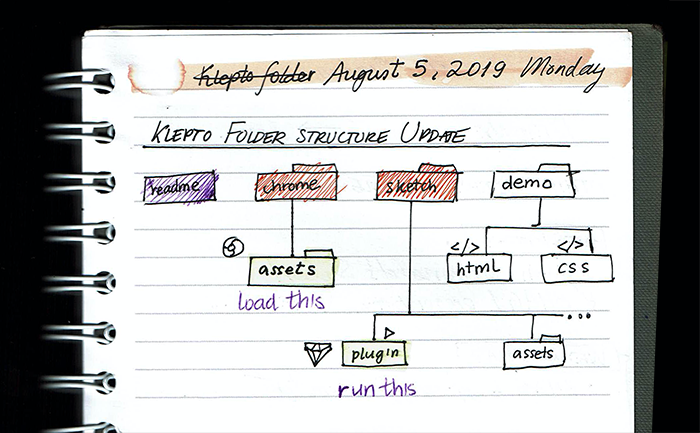 Klepto folder August 5, 2019 Monday
KLEPTO FOLDER STRUCTURE UPDATE
readme chrome sketch demo
</> </>
assets html css
load this
...
plugin assets
run this